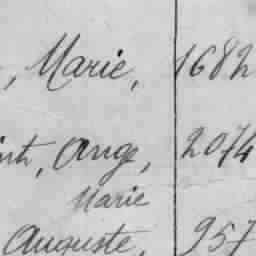 , Marie, 1682
, Ange, 2074
Marie
Auguste, 957